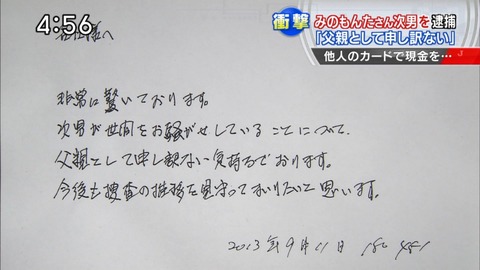 4:56
衝撃
みのもんたさん次男を逮捕
「父親として申し訳ない」
他人のカードで現金を…
非常に驚いております。
次男が世間をお騒がせしていることについて、
父親として申し訳ない気持ちでおります。
今後も捜査の推移を見守ってまいりたいと思います。
2013年9月11日